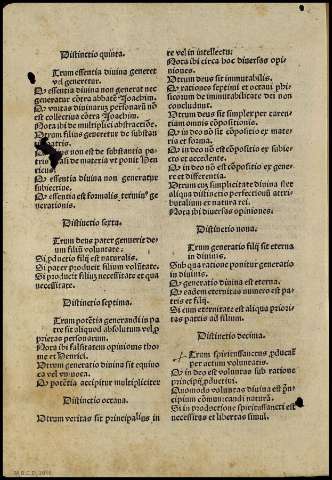 Distinctio quinta.
Utrum essentia diuina generet
vel generetur.
Qꝫ essentia diuina non generat nec
generatur cõtra abbatẽ Joachim.
Qꝫ vnitas diuinarũ personarũ nõ
est collectiua cõtra Joachim.
Nota ibi de multiplici abstractiõe.
Utrum filius generetur de substan
patris.
non est de substantia pa
de materia et ponit Hen
ricus.
Qꝫ essentia diuina non generatur
subiectiue.
Qꝫ essentia est formalis terminꝰ ge
nerationis.
Distinctio sexta.
Utrum deus pater genuerit de
um filiũ voluntate.
Si pductio filij est naturalis.
Si pater producit filium volũtate.
Si producit filiuz necessitate et qua
necessitate.
Distinctio septima.
Utrum potẽtia generandi in pa
tre sit aliquod absolutum vel p
prietas personarum.
Nota ibi falsitatem opinionis tho
me et Henrici.
Utrum generatio diuina sit equiuo
ca vel vniuoca.
Qꝫ potẽtia accipitur multipliciter
Distinctio octaua.
Utrum veritas sit principalius in
re vel in intellectu:
Nota ibi circa hoc diuersas opi
niones.
Utrum deus sit immutabilis.
Qꝫ rationes septimi et octaui phi
sicorum de immutabilitate dei non
concludunt.
Utrum deus sit simplex per caren
tiam omnis cõpositionis.
Qꝫ in deo nõ sit cõpositio ex mate
ria et forma.
Qꝫ in deo nõ est cõpositio ex subie
cto et accidente.
Qꝫ in deo nõ est cõpositio ex gene
re et differentia.
Utrum cũ simplicitate diuina stet
aliqua distinctio perfectionũ attri
butalium ex natura rei.
Nota ibi diuersas opiniones.
Distinctio nona.
Utrum generatio filij sit eterna
in diuinis.
Sub qua ratione ponitur generatio
in diuinis.
Qꝫ generatio diuina est eterna.
Qꝫ eadem eternitas numero est pa
tris et filij.
Si cum eternitate est aliqua priori
tas patris ad filium.
Distinctio decima.
Utrum spiritussanctus pducat
per actum voluntatis.
Qꝫ in deo est voluntas sub ratione
principij pductiui.
Quomodo voluntas diuina est prin
cipium cõmunicandi naturã.
Si in productione spiritussancti est
necessitas et libertas simul.